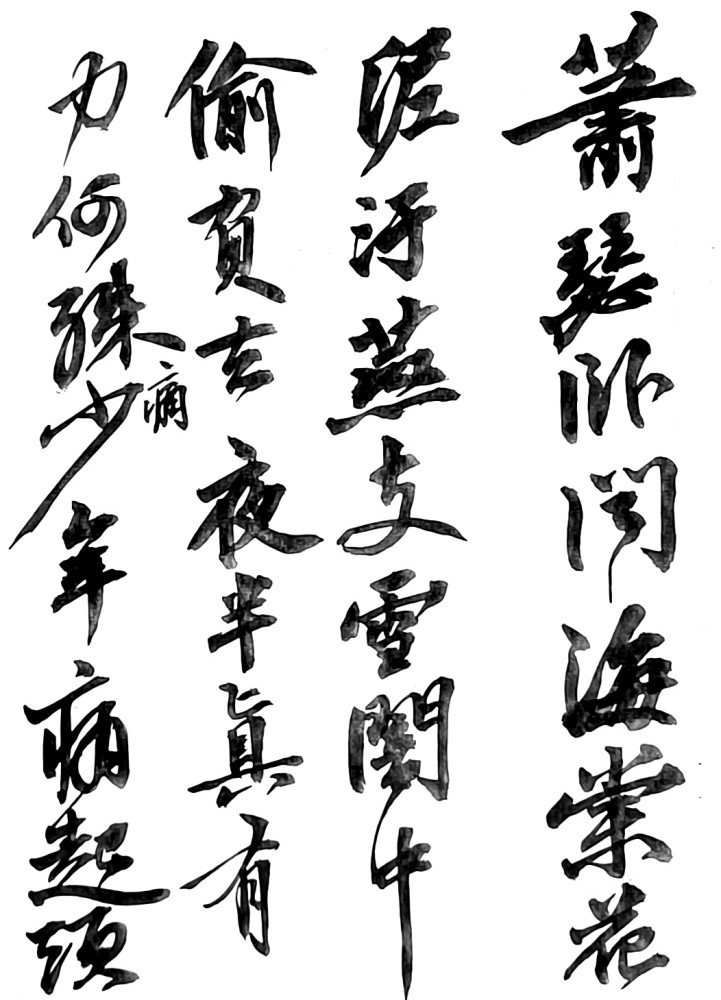 蕭瑟卧闻海棠花
泥汙燕支雪闇中
偷負去夜半真有
力何殊少年病起须
病